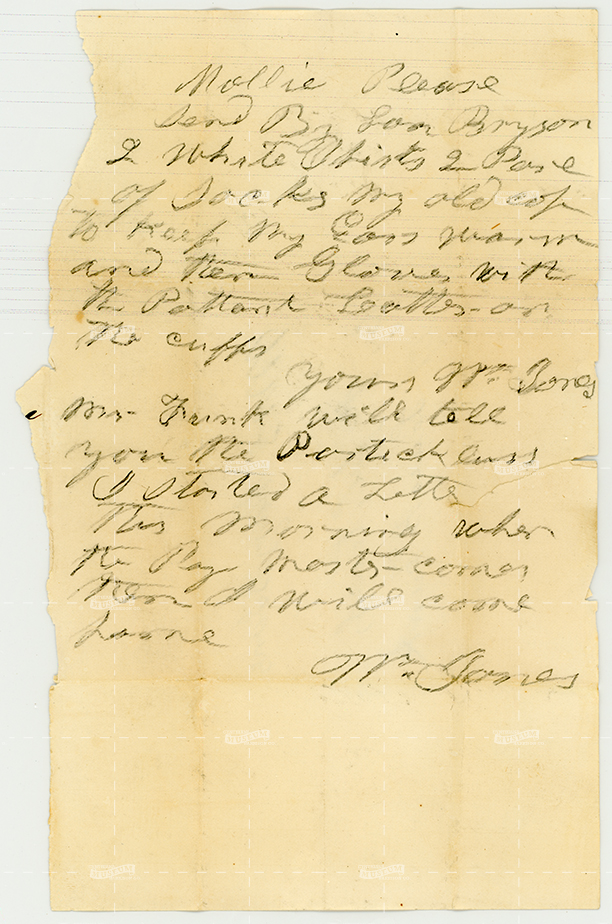 Mollie Please
Send By Sam Bryson
2 White Shirts 2 Pare
of Socks My old cap
to Keep My Ears warm
and them Gloves with
the Pattant Leather on
the cuffs
Yours Wm Jones
Mr Frink will tell
you the Partickulars
I Started a Letter
this Morning when
the Pay Master comes
then I will come
home
Wm Jones
MUSEUM